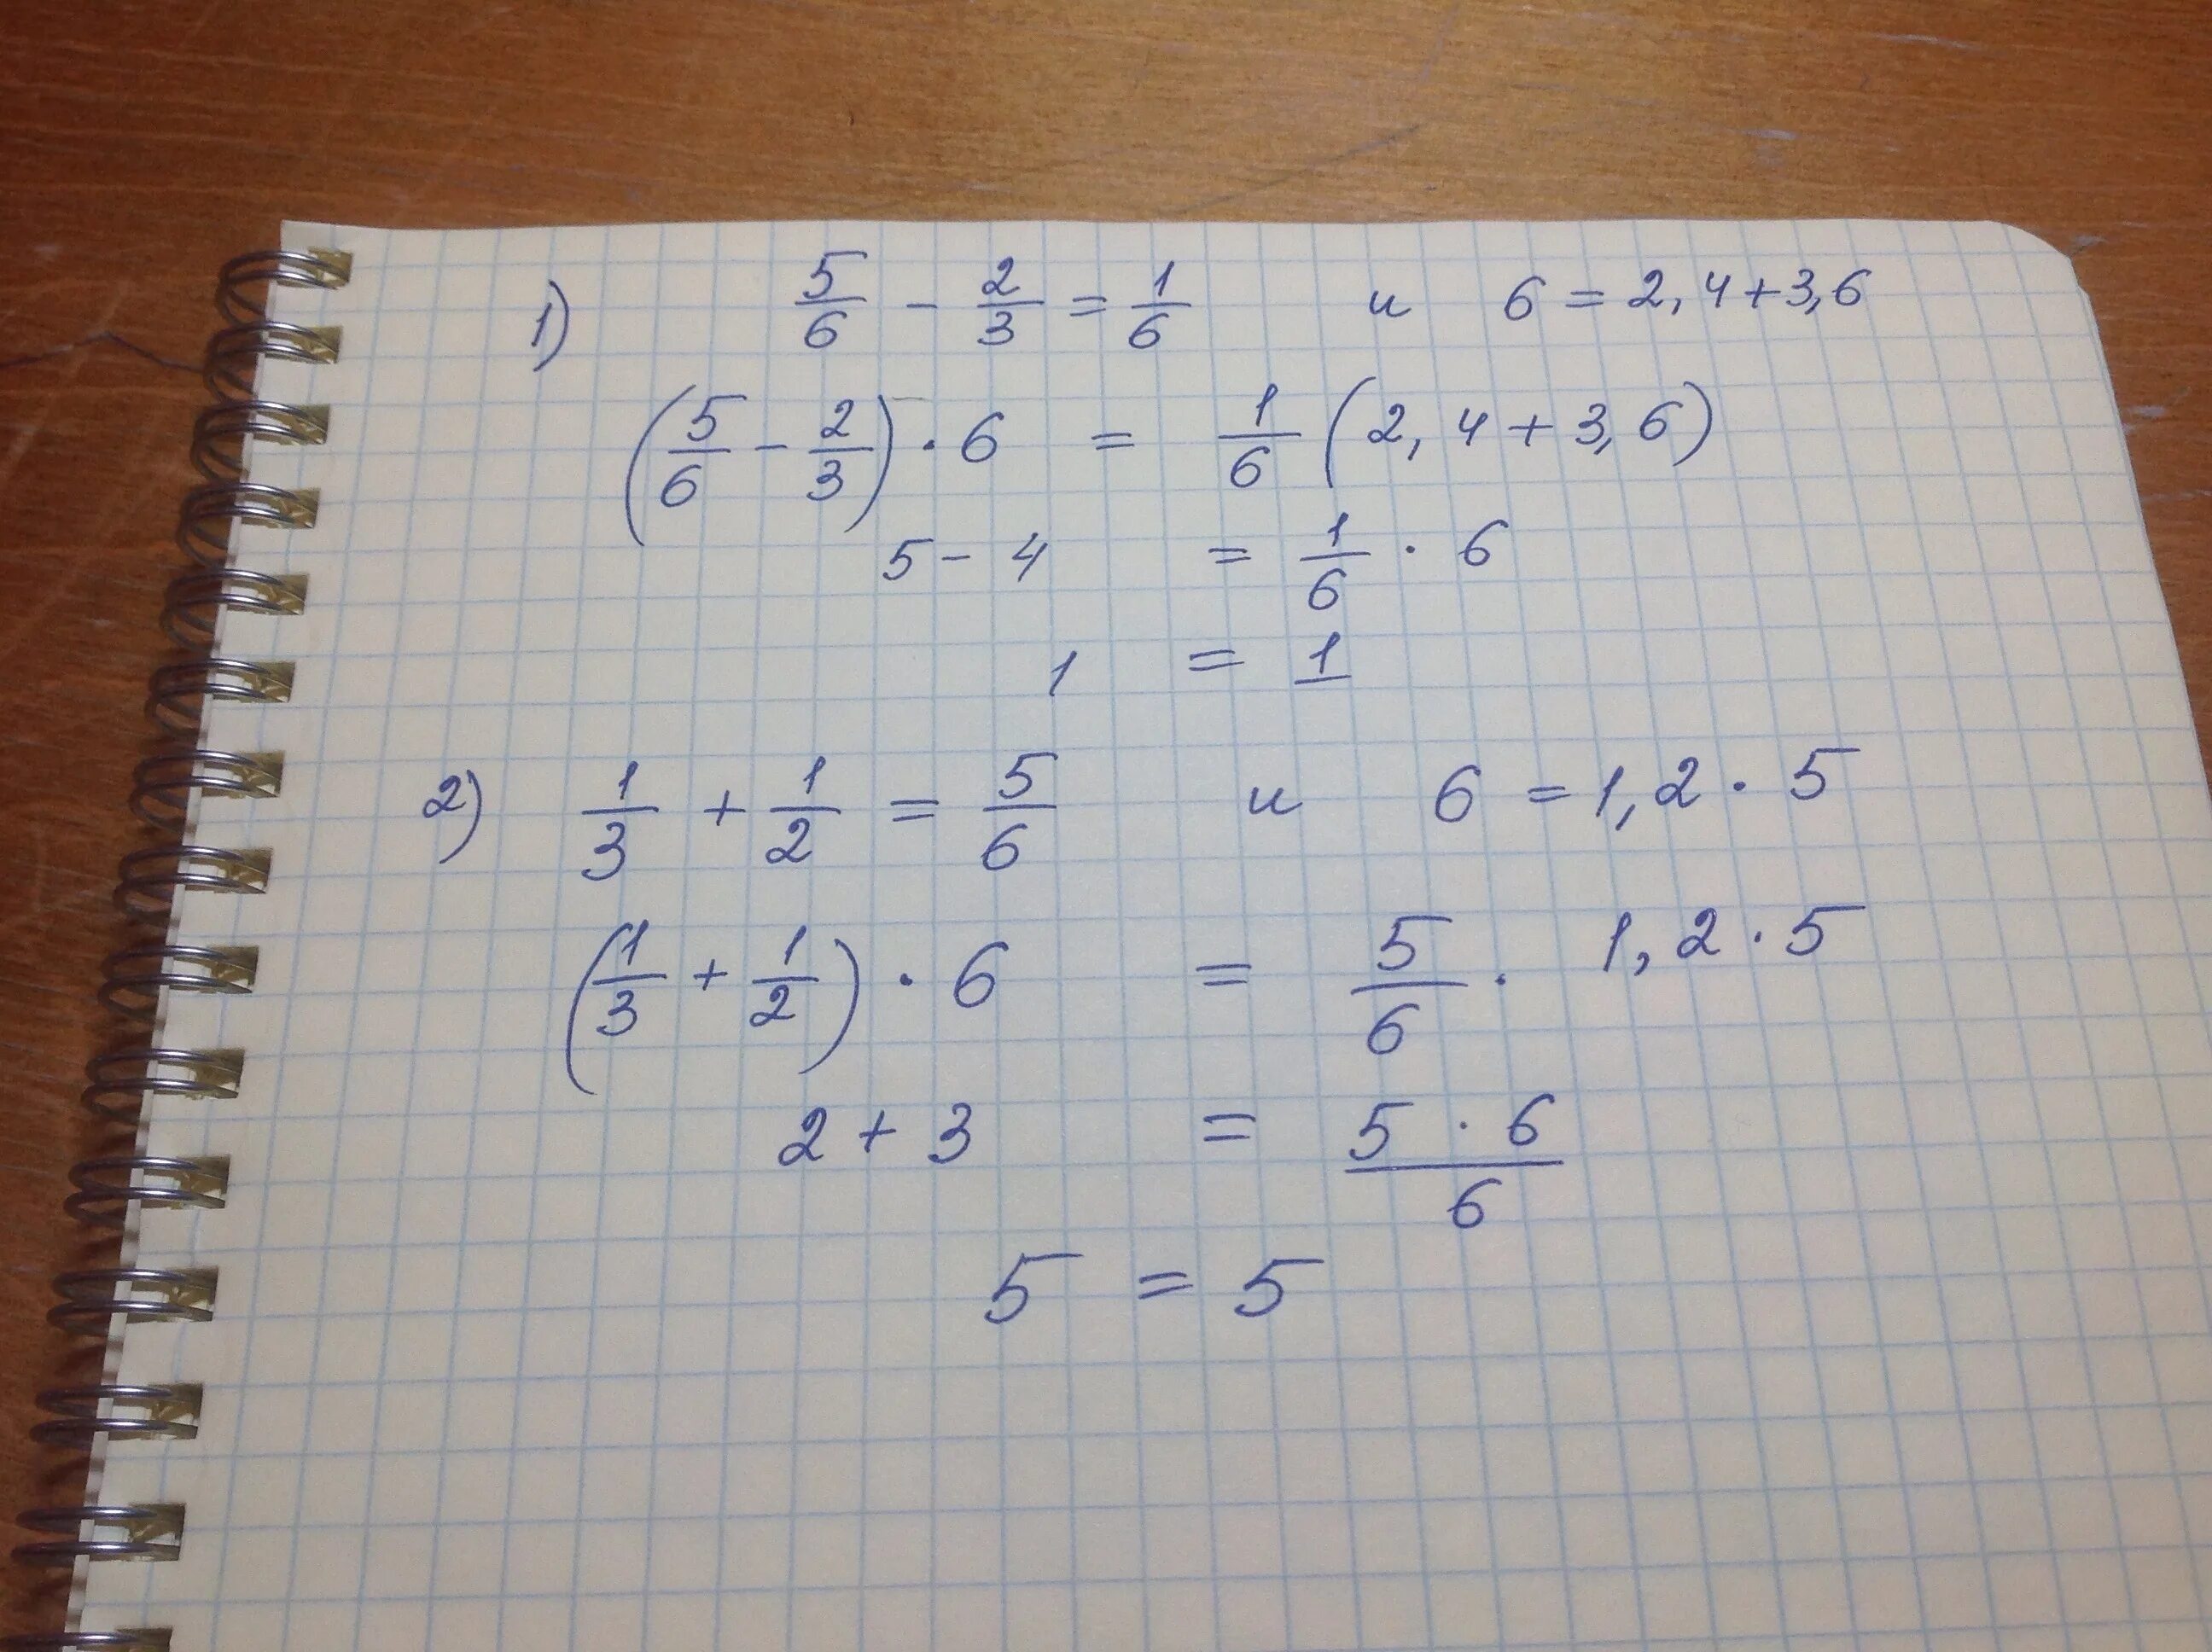 1) 5/6 - 2/3 = 1/6 и 6 = 2,4+3,6
(5/6 - 2/3) · 6 = 1/6 (2,4+3,6)
5 - 4 = 1/6 · 6
1 = 1
2) 1/3 + 1/2 = 5/6 и 6 = 1,2 · 5
(1/3 + 1/2) · 6 = 5/6 · 1,2 · 5
2 + 3 = 5 · 6/6
5 = 5